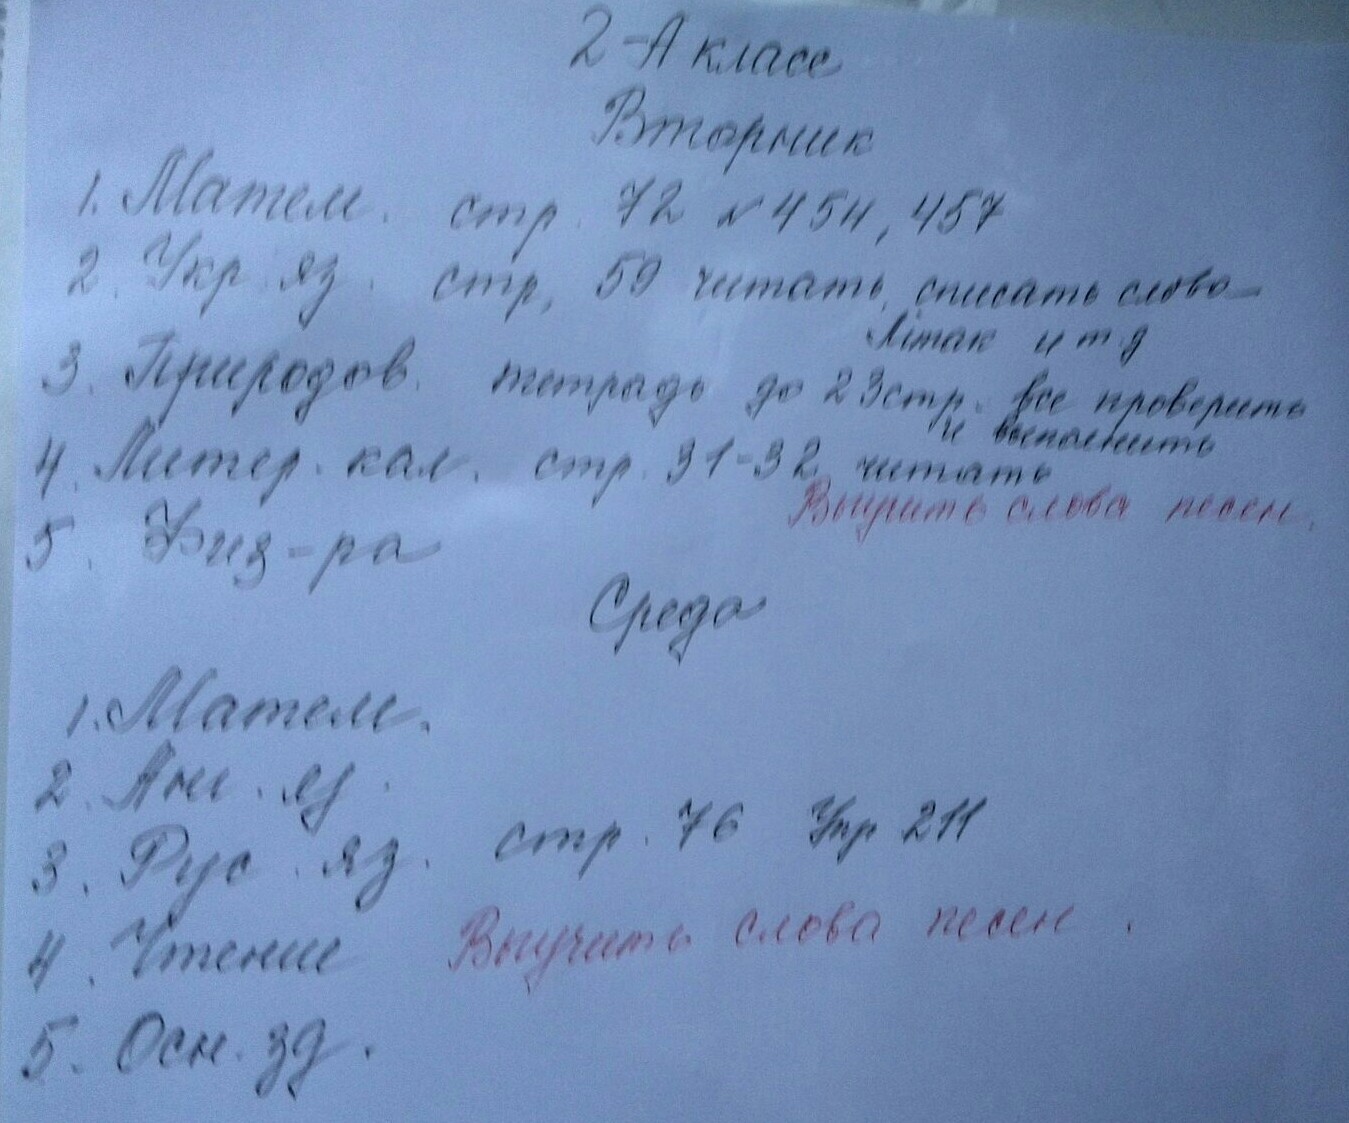 2-А класс
Вторник
1. Матем. стр. 72 № 454, 457
2. Укр. яз. стр. 59 читать, списать слова
Літак и т д
3. Природов. тетрадь до 23 стр. все проверить
и выполнить
4. Литер. кал. стр. 31-32 читать
Выучить слова песен.
5. Физ-ра
Среда
1. Матем.
2. Анг. яз.
3. Рус. яз. стр. 76 Упр 211
4. Чтение Выучить слова песен.
5. Осн. зд.